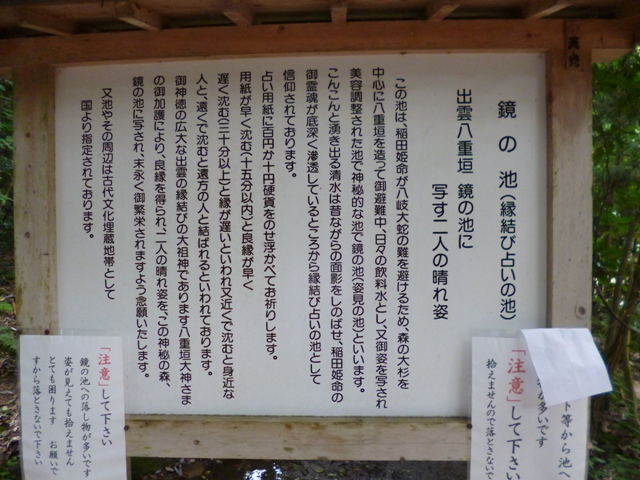 鏡の池（縁結び占いの池）
出雲八重垣 鏡の池に
写す二人の晴れ姿
この池は、稲田姫命が八岐大蛇の難を避けるため、森の大杉を
中心に八重垣を造って御避難中、日々の飲料水とし又御姿を写され
美容調整された池で神秘的な池で鏡の池（姿見の池）といいます。
こんこんと湧き出る清水は昔ながらの面影をしのばせ、稲田姫命の
御霊魂が底深く滲透しているところから縁結び占いの池として
信仰されております。
占い用紙に百円か十円硬貨をのせ浮かべてお祈りします。
用紙が早く沈む（十五分以内）と良縁が早く
遅く沈む（三十分以上）と縁が遅いといわれ又近くで沈むと身近な
人と、遠くで沈むと遠方の人と結ばれるといわれております。
御神徳の広大な出雲の縁結びの大祖神であります八重垣大神さま
の御加護により、良縁を得られ、二人の晴れ姿を、この神秘の森、
鏡の池に写され、末永く御繁栄されますよう念願いたします。
又池やその周辺は古代文化埋蔵地帯として
国より指定されております。
等から池へ
が多いです
「注意」して下さい
拾えませんので落とさないで
「注意」して下さい
鏡の池への落し物が多いです
姿が見えても拾えません
とても困ります お願いで
すから落とさないで下さい